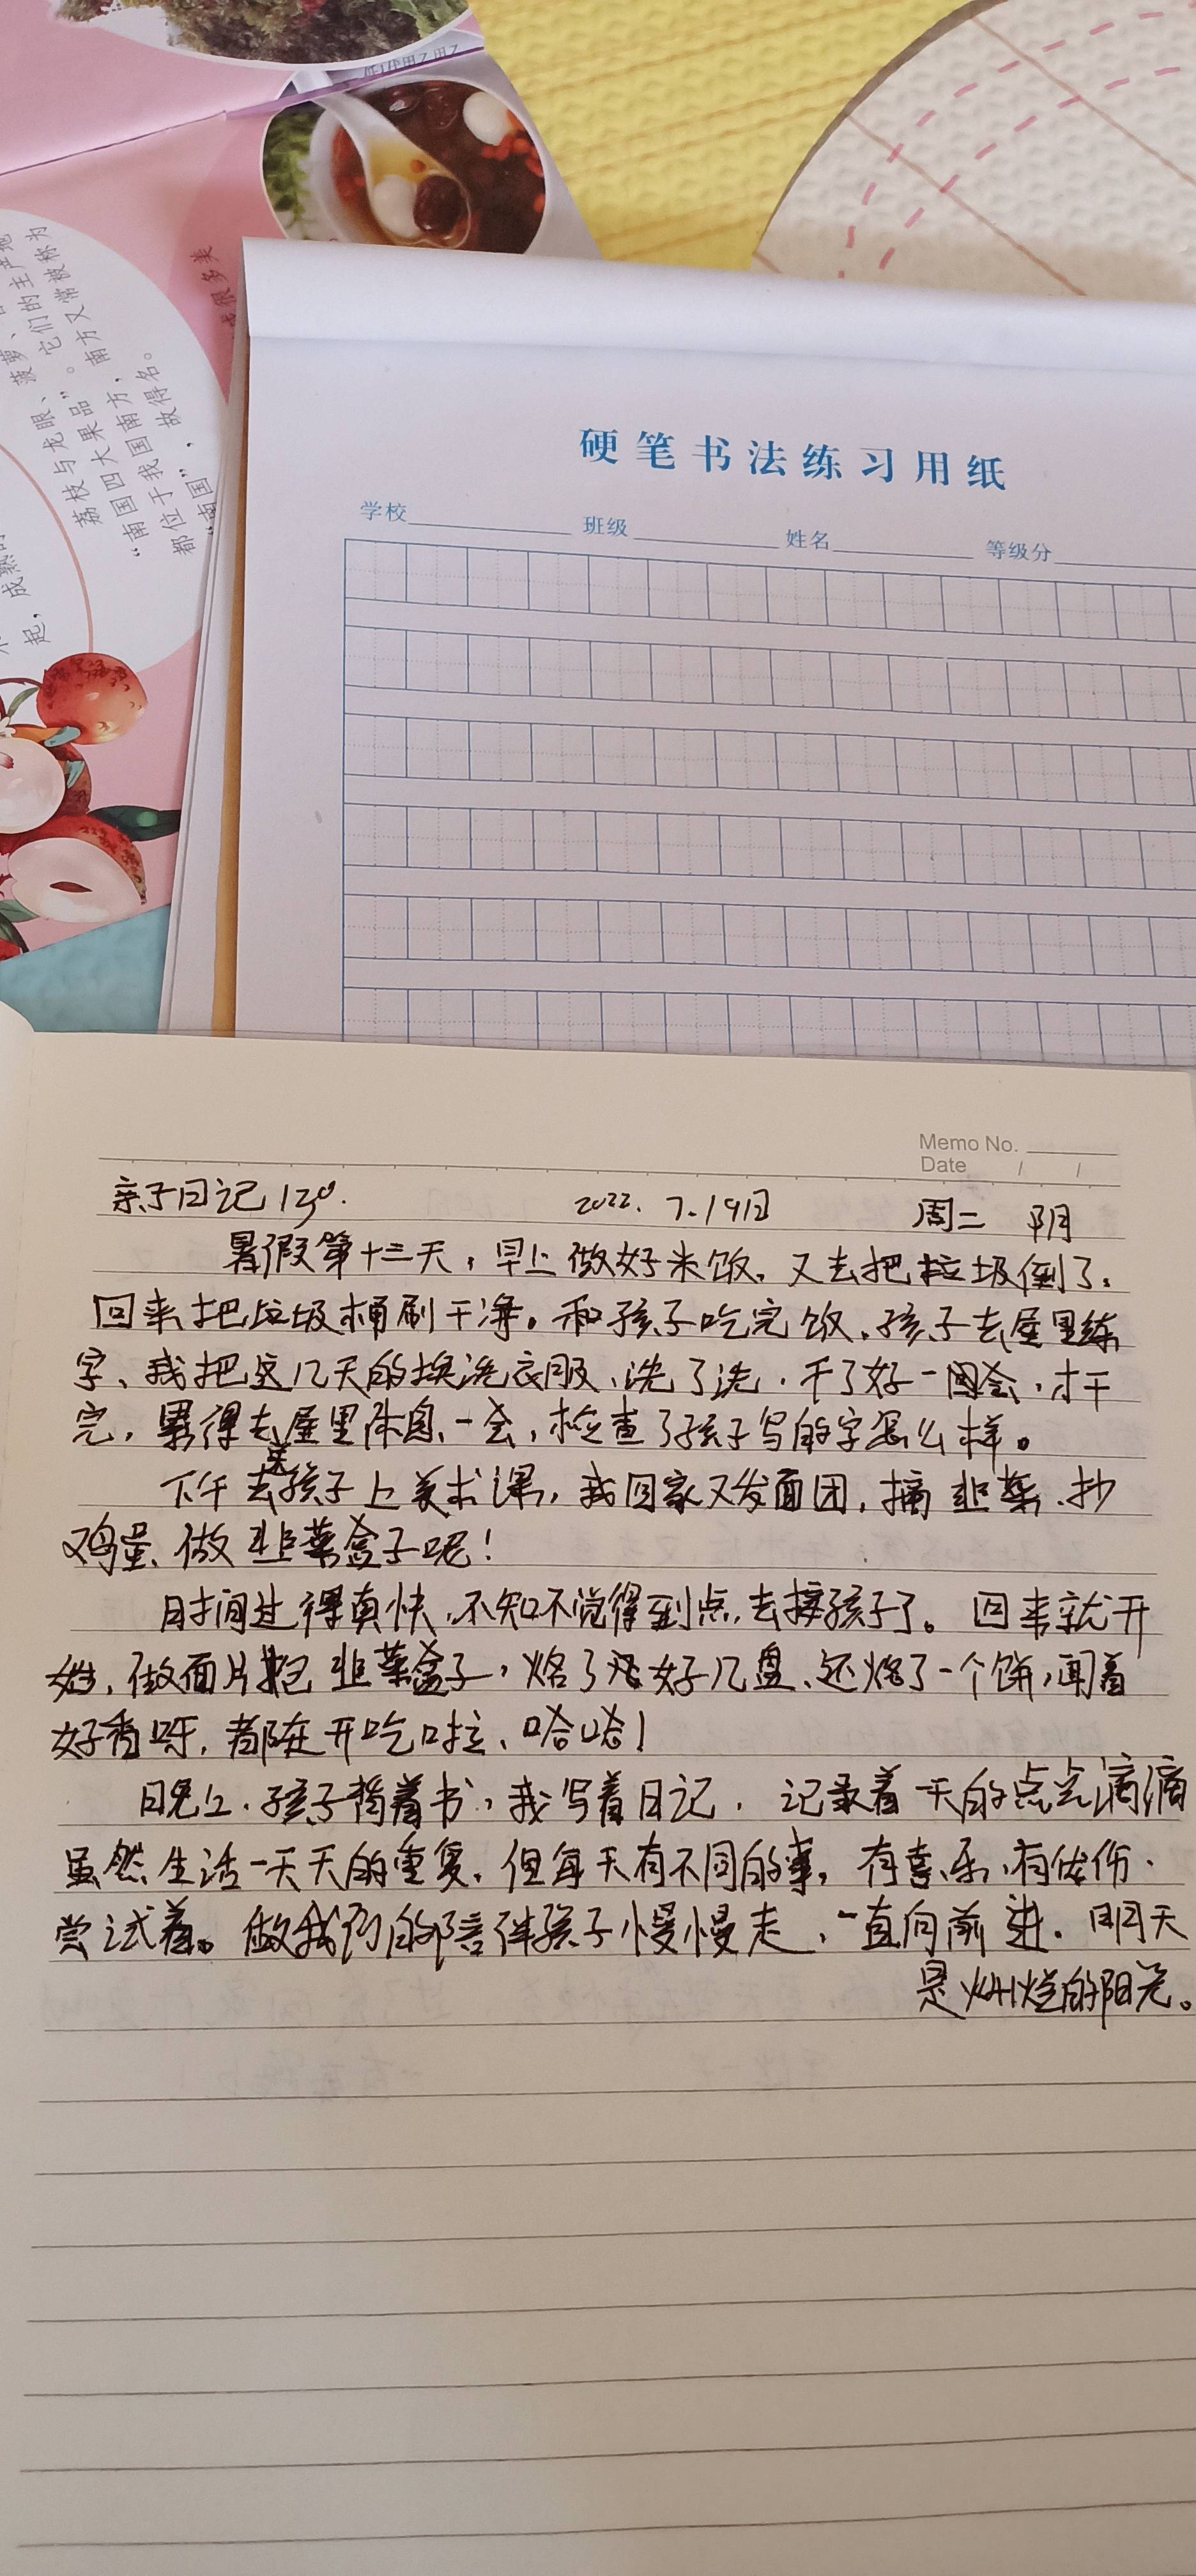 荔枝与龙眼、菠萝、
它们的主产地
“南国四大果品”。南方又常被称为
都位于我国南方，
“南国”，故得名。
硬笔书法练习用纸
学校 班级 姓名 等级分
Memo No.
Date / /
亲子日记130. 2022.7.19日 周二 阴
暑假第十三天，早上做好米饭，又去把垃圾倒了。
回来把垃圾桶刷干净。和孩子吃完饭，孩子去屋里练
字、我把这几天的换洗衣服、洗了洗，干了好一会，才干
完，累得去屋里休息一会，检查了孩子写的字怎么样。
下午去送孩子上美术课，我回家又发面团，摘韭菜、抄
鸡蛋、做韭菜盒子呢！
时间过得真快，不知不觉得到点，去接孩子了。回来就开
始，做面片包韭菜盒子，烙了好几盘、还烙了一个饼，闻着
好香呀，都在开吃啦、哈哈！
晚上，孩子背着书，我写着日记，记录着一天的点点滴滴
虽然生活一天天的重复，但每天有不同的事，有喜乐，有优伤.
尝试着。做我们的陪伴孩子慢慢走，一直向前进.明天
是灿烂的阳光。